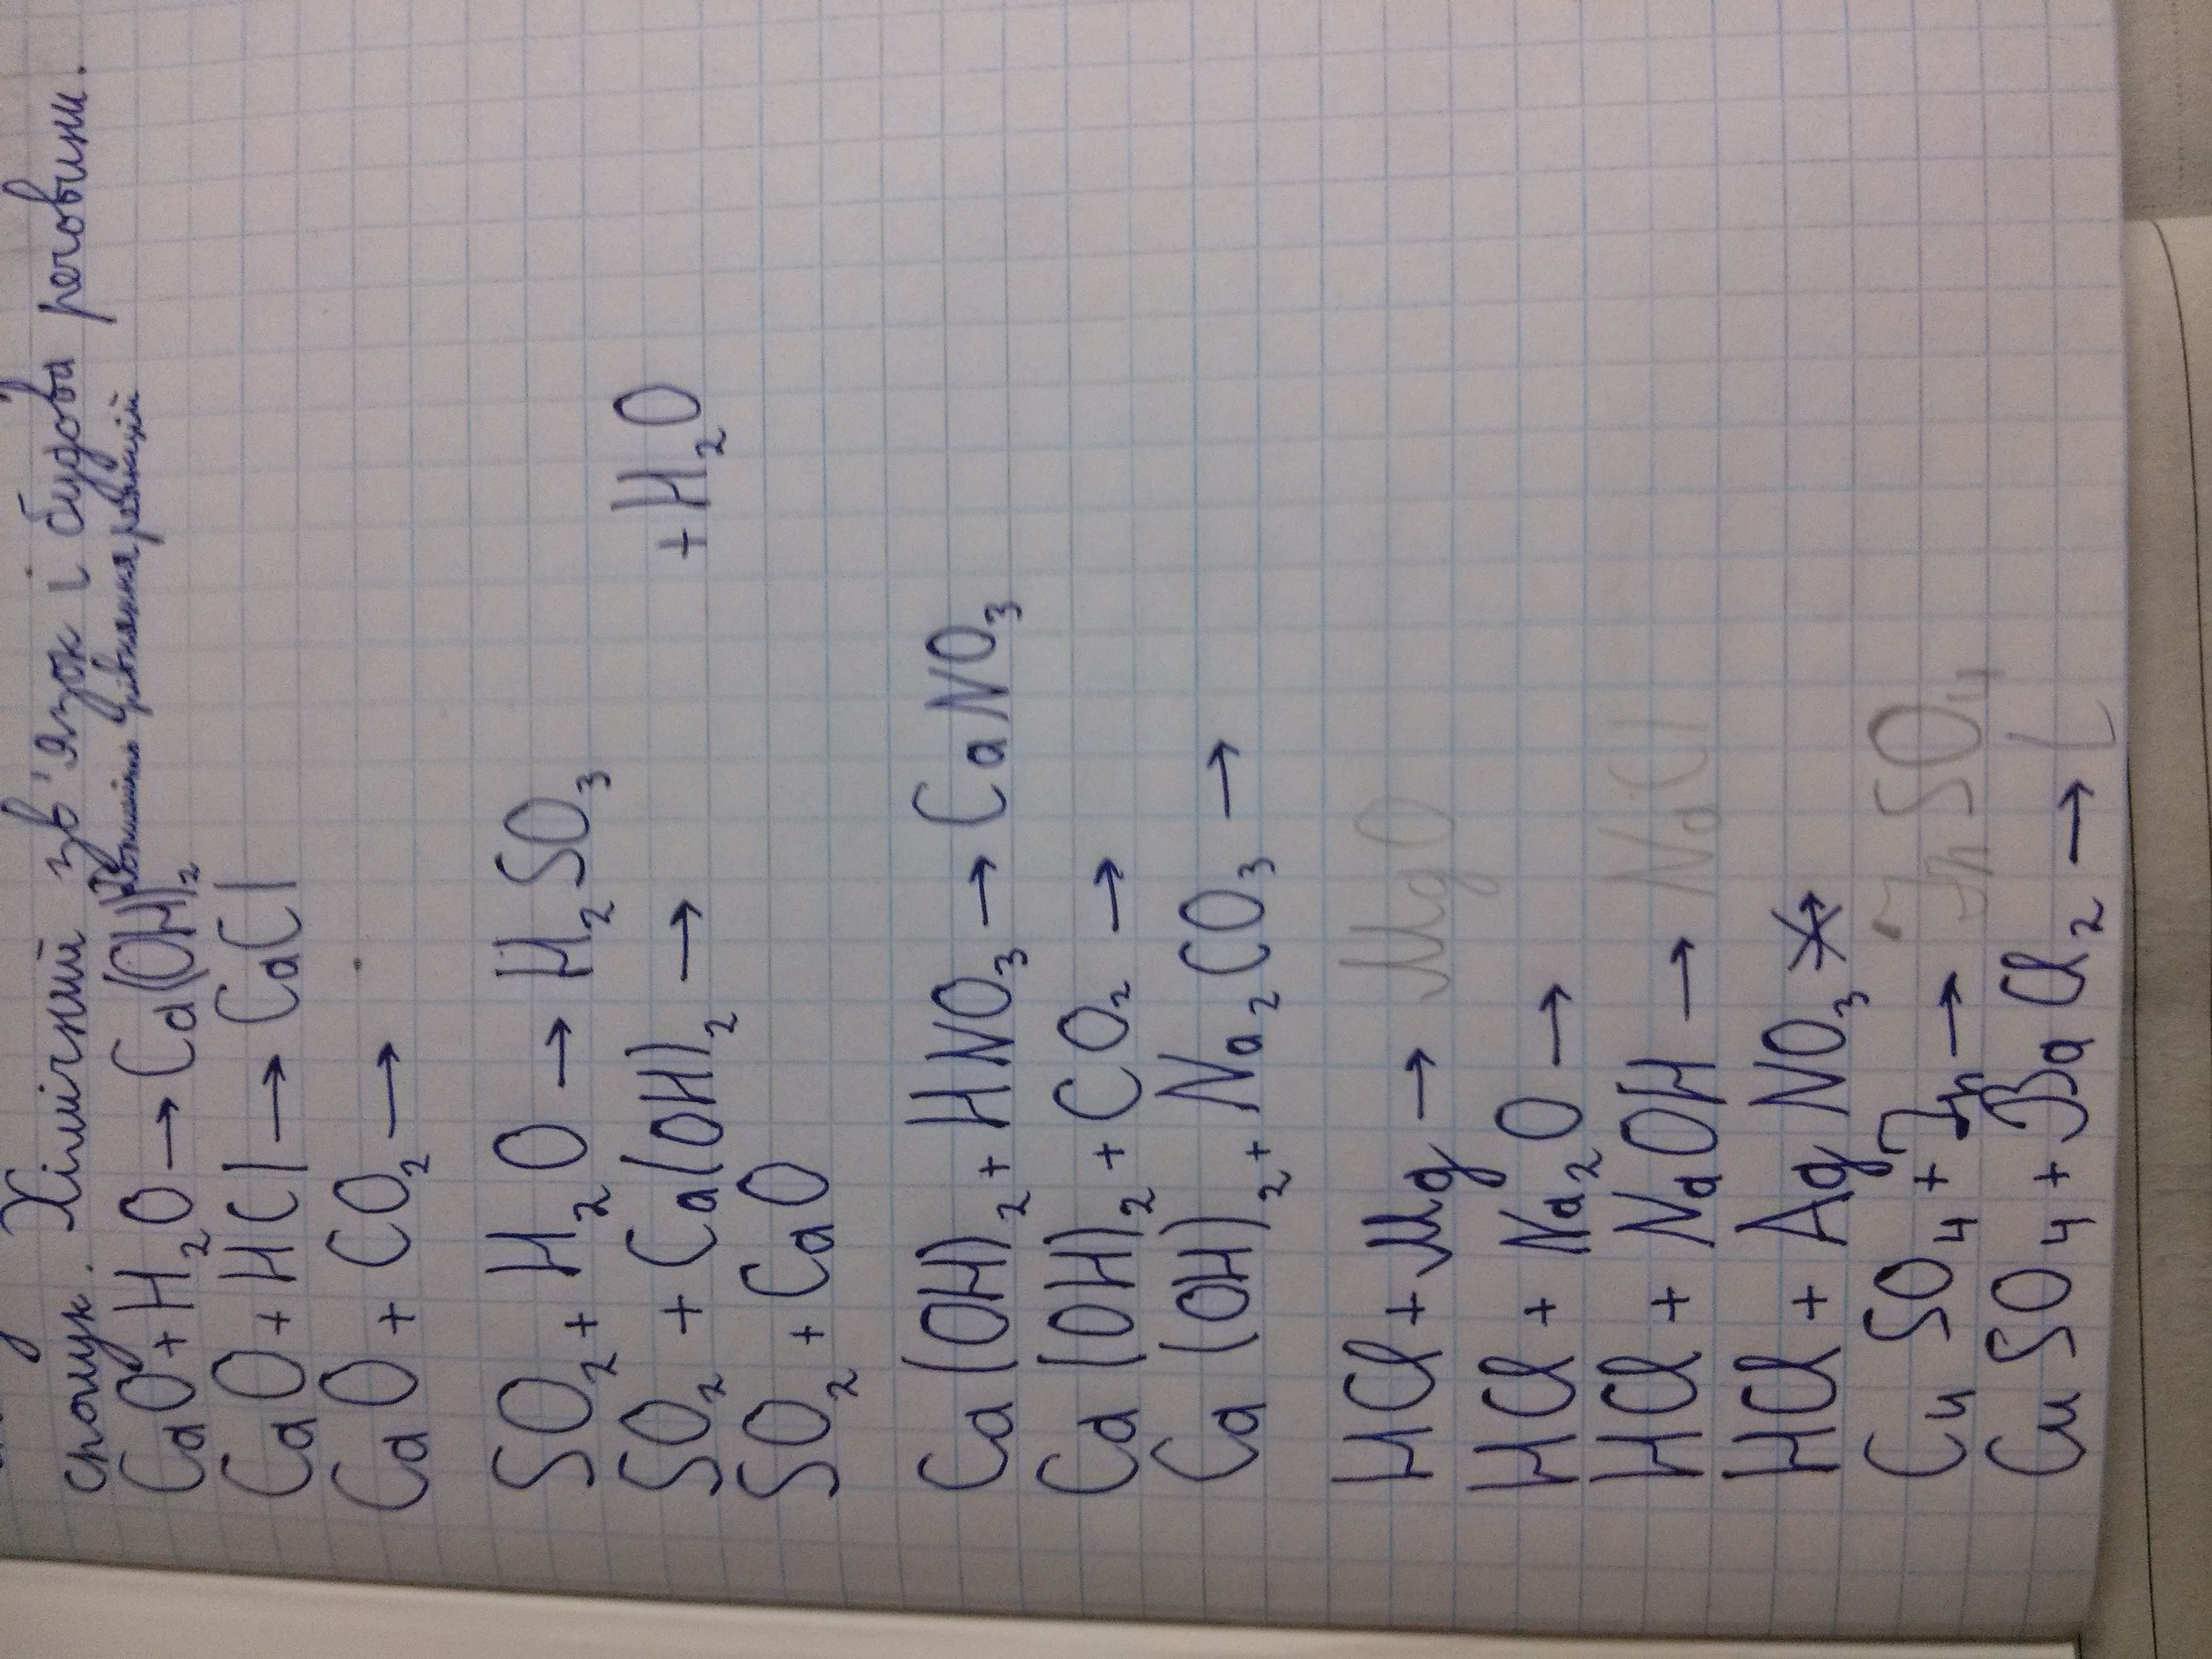 сполук. Хімічний зв'язок і будова речовини.
Допишіть рівняння реакцій
CaO + H₂O → Ca(OH)₂
CaO + HCl → CaCl
CaO + CO₂ →
SO₂ + H₂O → H₂SO₃
SO₂ + Ca(OH)₂ → + H₂O
SO₂ + CaO
Ca(OH)₂ + HNO₃ → CaNO₃
Ca(OH)₂ + CO₂ →
Ca(OH)₂ + Na₂CO₃ →
HCl + Mg → MgO
HCl + Na₂O →
HCl + NaOH → NaCl
HCl + AgNO₃ →
CuSO₄ + Zn → ZnSO₄
CuSO₄ + BaCl₂ →